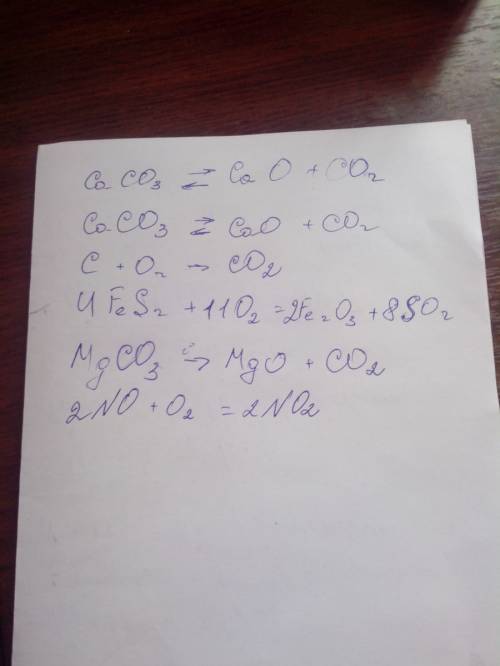 CaCO₃ ⇄ CaO + CO₂
CaCO₃ ⇄ CaO + CO₂
C + O₂ → CO₂
4FeS₂ + 11O₂ = 2Fe₂O₃ + 8SO₂
MgCO₃ →(t°) MgO + CO₂
2NO + O₂ = 2NO₂